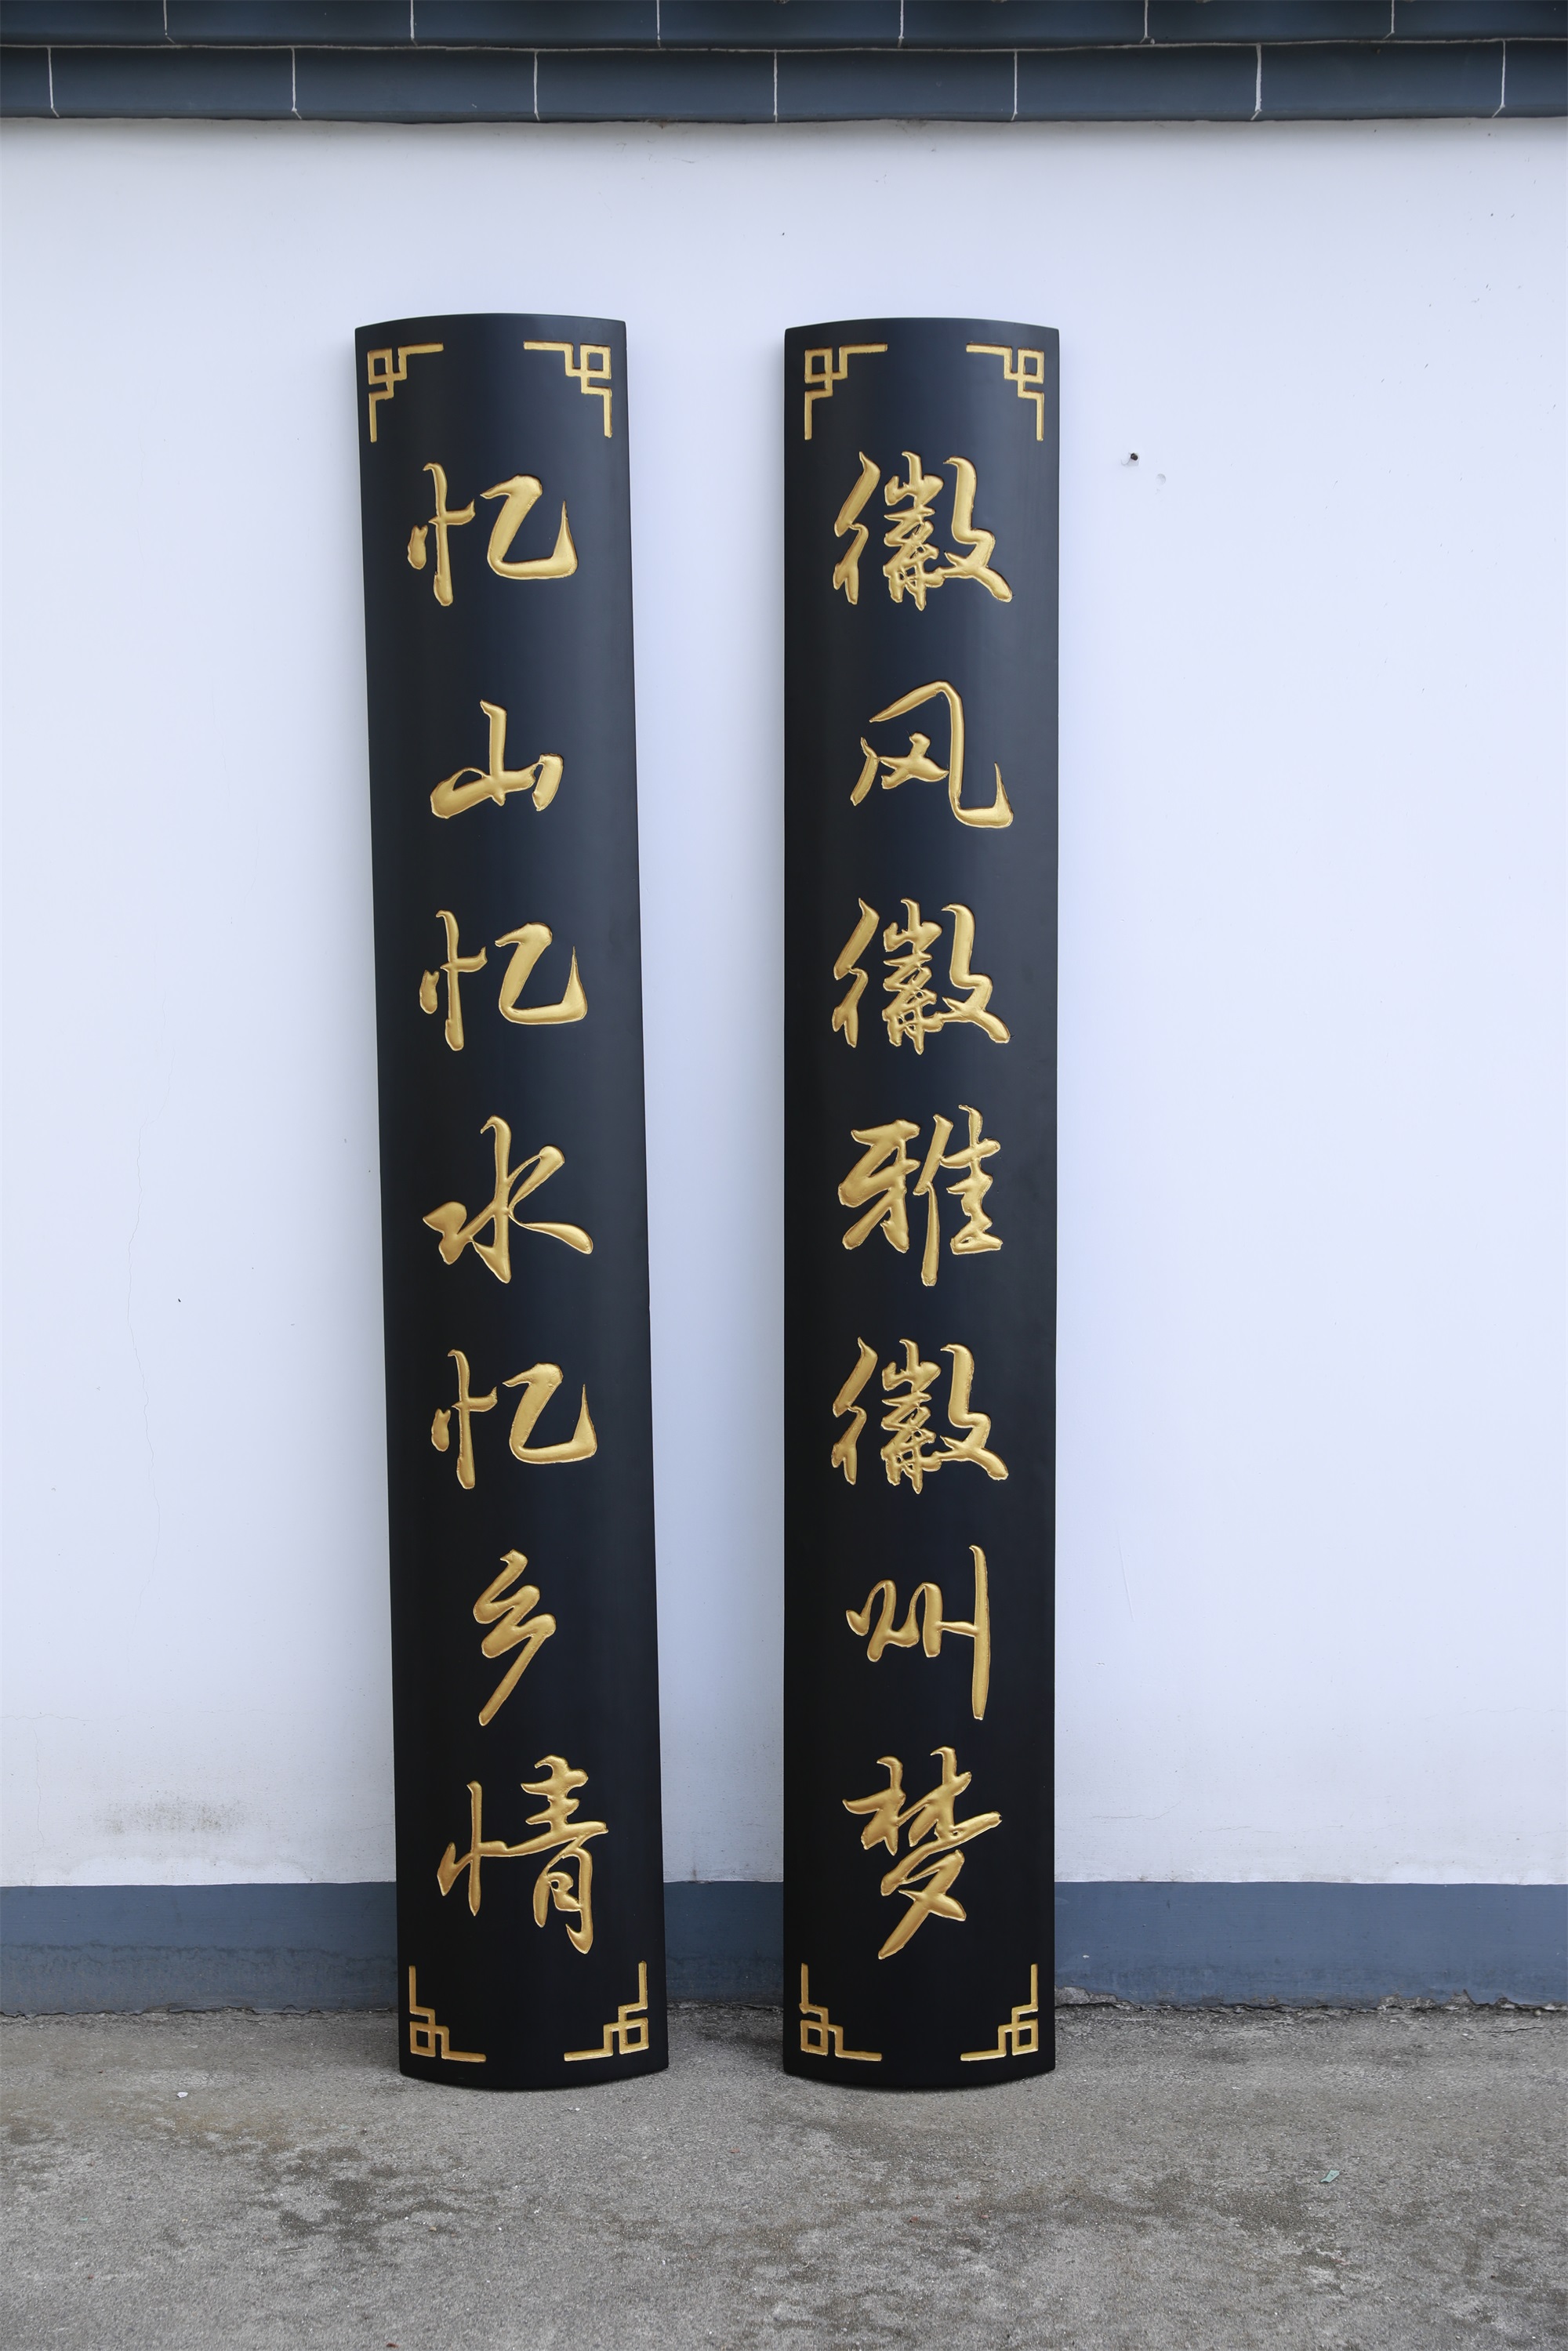 徽风徽雅徽州梦
忆山忆水忆乡情